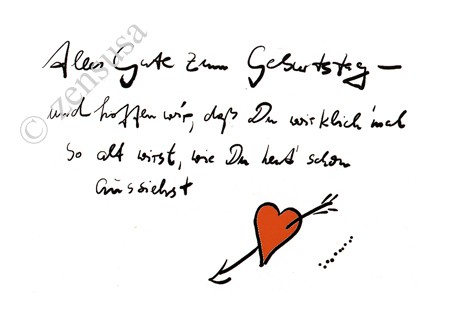 Alles Gute zum Geburtstag –
und hoffen wir, daß Du wirklich 'mal
so alt wirst, wie Du heut' schon
aussiehst
© zensusa